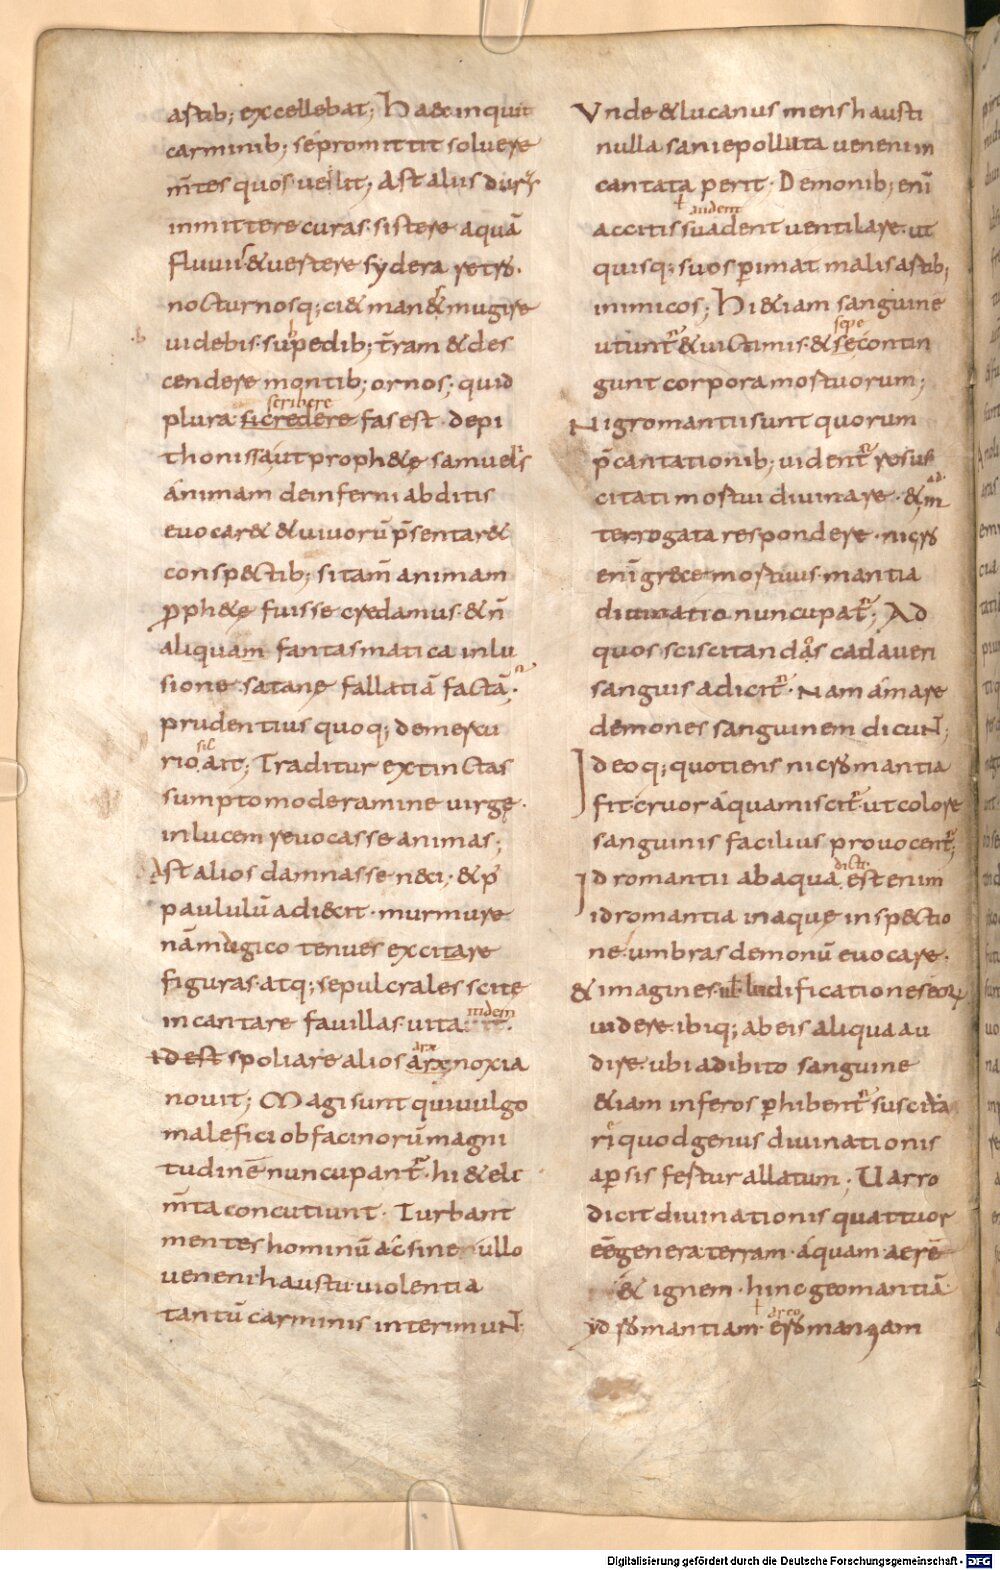 astib; excellebat; Haec inquit
carminib; sépromittit soluere
m̄tes quos uellit; Ast alus duras
inmittere curas sistere aquā
fluuiis & uertere sydera retro.
nocturnosq; ci& man&s mugire
uidebis subpedib; t̄ram & des
cendere montib; ornos; quid
scribere
plura sicredere fas est. depi
thonissa ut proph&ę samuelis
ánimam deinferni abditis
euocar& & uiuorū p̄sentar&
consp&ctib; sitam̄ animam
proph&ę fuisse credamus & n̄
aliquam fantasmatica inlu
sione satanę fallatiā factā.
prudentius quoq; demercu
sic
rio ait; Traditur extinctas
sumptomoderamine uirgę.
inlucem reuocasse animas;
Ast alios damnasse neci; & p
paululū adiecit. murmure
nā mugico tenues excitare
figuras. atq; sepulcrales scite
incantare fauillas. uita
itidem
id est spoliare alios arx noxia
arx
nouit; Magi sunt qui uulgo
malefici ob facinorū magni
tudinē nuncupant. hi & ele
m̄ta concutiunt. Turbant
mentes hominū ác sine ullo
ueneni haustu uiolentia
tantū carminis interimunt.
Vnde & lucanus mens hausti
nulla sanie polluta uenenin
cantata perit; Demonib; enī
audent
accitis suadent uentilare. ut
quisq; suos perimat malis astib;
inimicos; Hi & iam sanguine
sepe
utunt & uictimis. & secontin
gunt corpora mortuorum;
Nigromantii sunt quorum
p̄cantationib; uident resus
citati mortui diuinare. & in
ad
terrogata respondere. nicro
enī grece mortuus. mantia
diuinatio nuncupat; Ad
quos sciscitandos cadaueri
sanguis adicit. Nam ámare
demones sanguinem dicunt;
Ideoq; quotiens nicromantia
fit cruor áquamiscit ut colore
sanguinis facilius prouocent;
dicti
Idromantii abaqua, est enim
idromantia inaquę insp&ctio
ne. umbras demonū euocare.
& imagines ul ludificationes eorum
uidere. ibiq; abeis aliqua au
dire. ubi adibito sanguine
&iam inferos perhibent suscita
ri quod genus diuinationis
apersis fertur allatum; Uarro
dicit diuinationis quattuor
eē genera terram. áquam. aerē
& ignem. hinc geomantiā
aero
idromantiam ero manquam
Digitalisierung gefördert durch die Deutsche Forschungsgemeinschaft - DFG